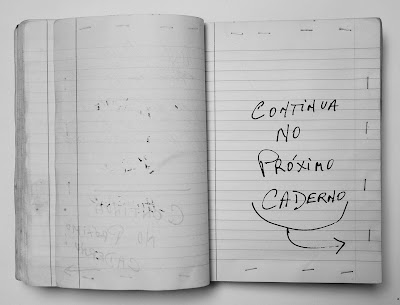 CONTINUA
NO
PRÓXIMO
CADERNO